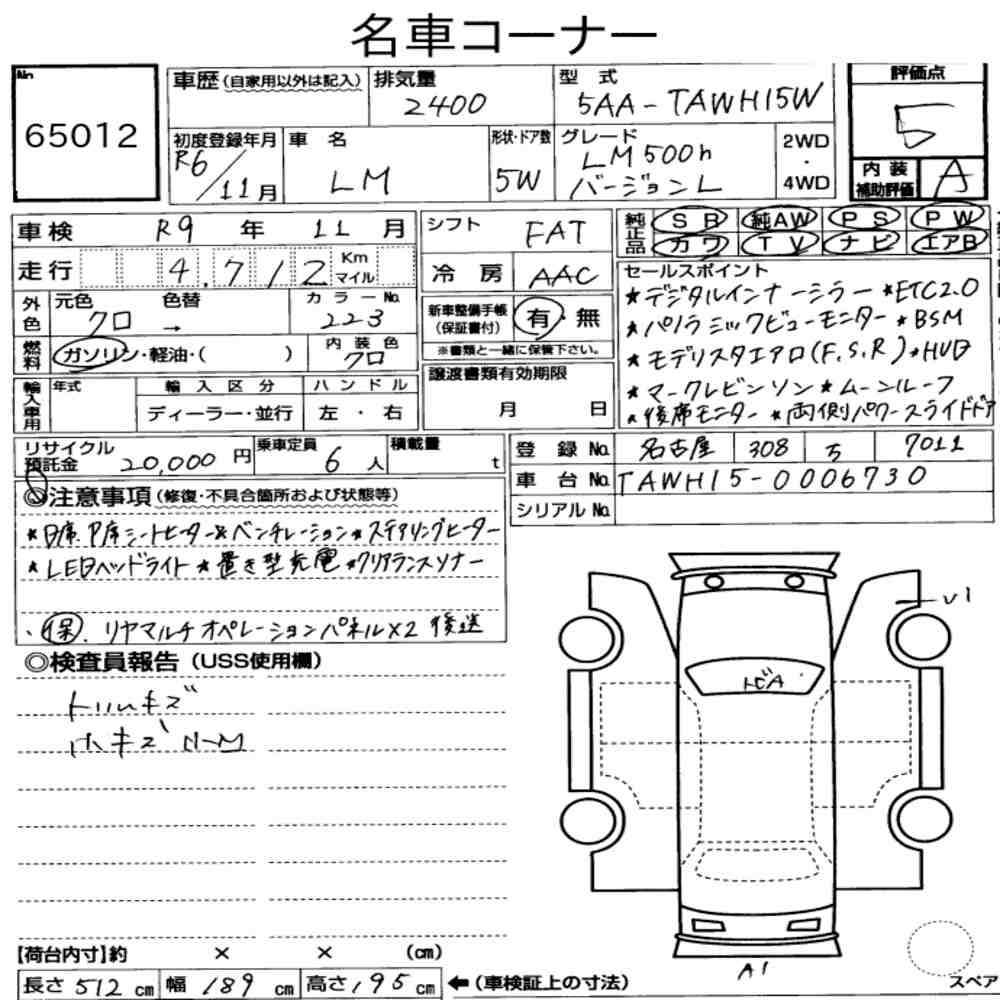 名車コーナー
No.
65012
車歴 (自家用以外は記入)
排気量
2400
型 式
5AA-TAWH15W
評価点
5
初度登録年月
R6/11月
車 名
LM
形状・ドア数
5W
グレード
LM500h
バージョンL
2WD
・
4WD
内装
補助評価
A
車検 R9 年 11 月
走行 4.712 Km マイル
シフト FAT
冷房 AAC
純正品 SR 純AW PS PW
カワ TV ナビ エアB
外色 元色 色替 カラーNo.
クロ → 223
燃料 ガソリン・軽油・( ) 内装色 クロ
新車整備手帳
(保証書付)
有・無
※書類と一緒に保管下さい。
セールスポイント
★デジタルインナーミラー ★ETC2.0
★パノラミックビューモニター ★BSM
★モデリスタエアロ(F.S.R)★HUD
★マークレビンソン★ムーンルーフ
★後席モニター ★両側パワースライドドア
輸入車用 年式 輸入区分 ハンドル
ディーラー・並行 左・右
譲渡書類有効期限
月 日
リサイクル
預託金 20,000円
乗車定員 6人
積載量 t
登録No. 名古屋 308 ち 7011
車台No. TAWH15-0006730
シリアルNo.
◎注意事項(修復・不具合箇所および状態等)
★D席P席シートヒーター&ベンチレーション★ステアリングヒーター
★LEDヘッドライト★置き型充電★クリアランスソナー
・(保).リヤマルチオペレーションパネルX2 後送
◎検査員報告(USS使用欄)
トリムキズ
ホキズ
U1
トビA
A1
【荷台内寸】約 × × (cm)
長さ512cm 幅189cm 高さ195cm ←(車検証上の寸法)
スペア